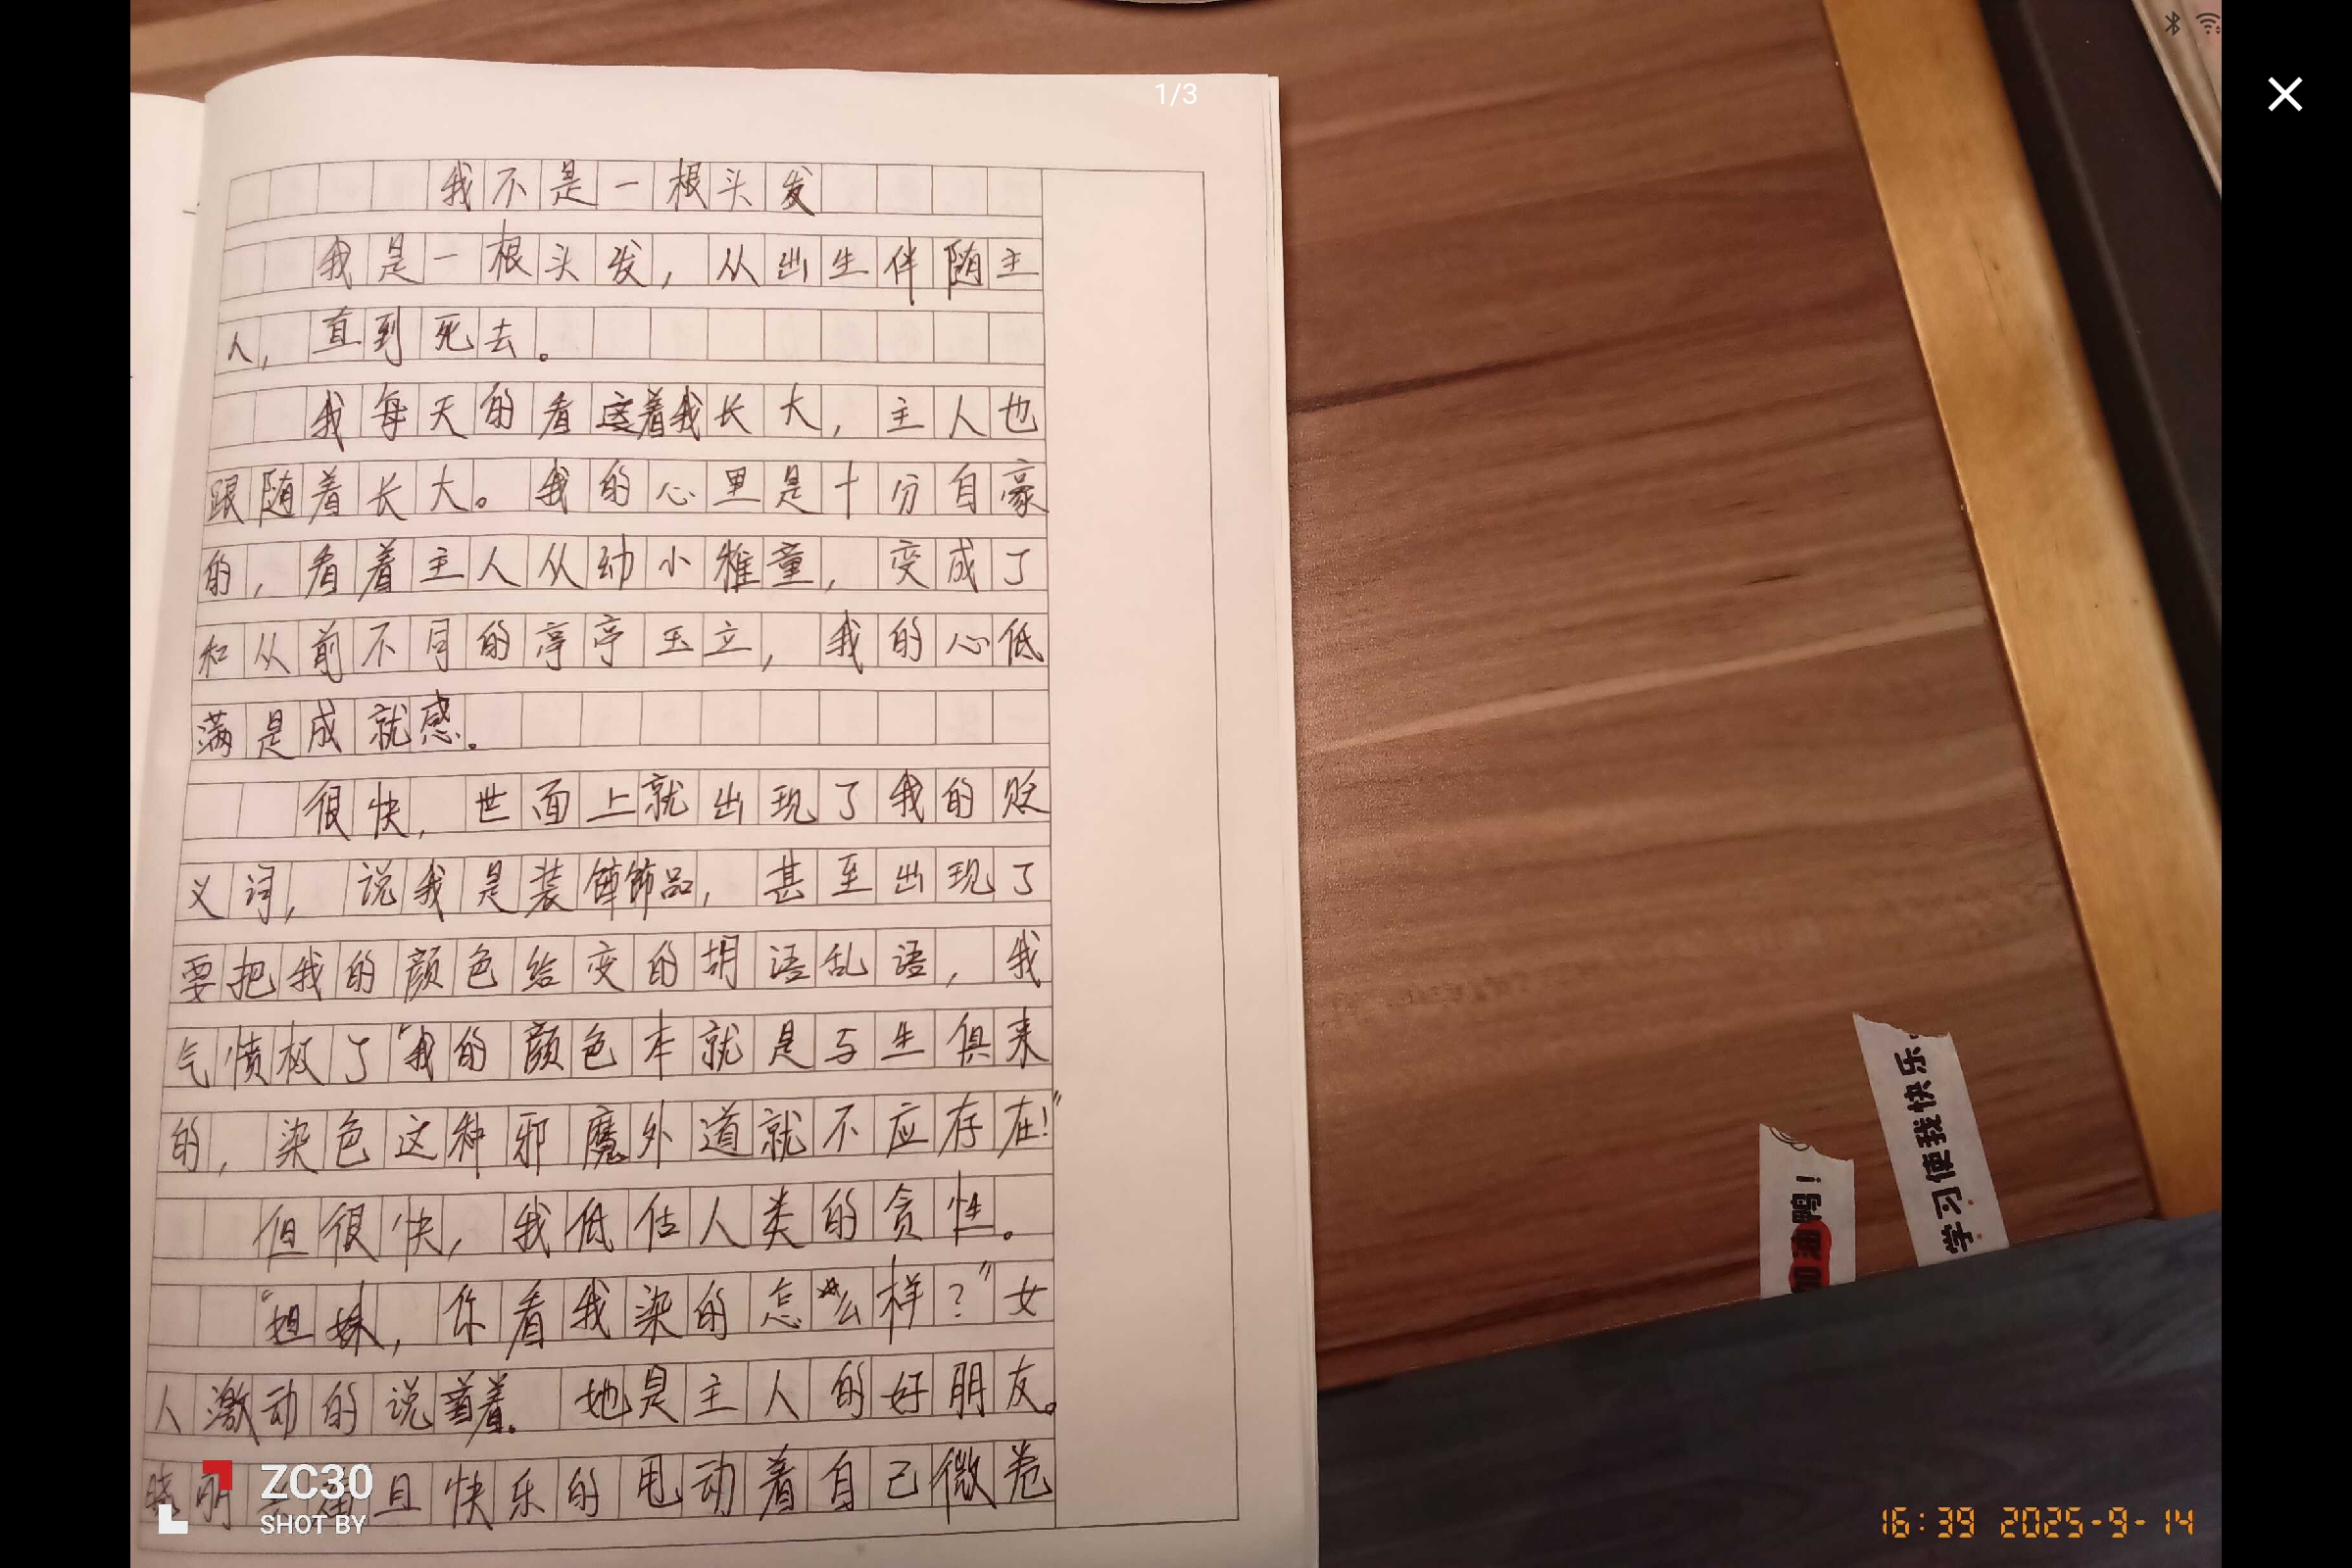 1/3
我不是一根头发
我是一根头发，从出生伴随主
人，直到死去。
我每天的看着我长大，主人也
跟随着长大。我的心里是十分自豪
的，看着主人从幼小稚童，变成了
和从前不同的亭亭玉立，我的心低
满是成就感。
很快，世面上就出现了我的贬
义词，说我是装饰品，甚至出现了
要把我的颜色给变的胡语乱语，我
气愤极了“我的颜色本就是与生俱来
的，染色这种邪魔外道就不应存在！”
但很快，我低估人类的贪性。
“姐妹，你看我染的怎么样？”女
人激动的说着。她是主人的好朋友。
且快乐的甩动着自己微卷
ZC30
SHOT BY
加油鸭！
学习使我快乐
16:39 2025-9-14